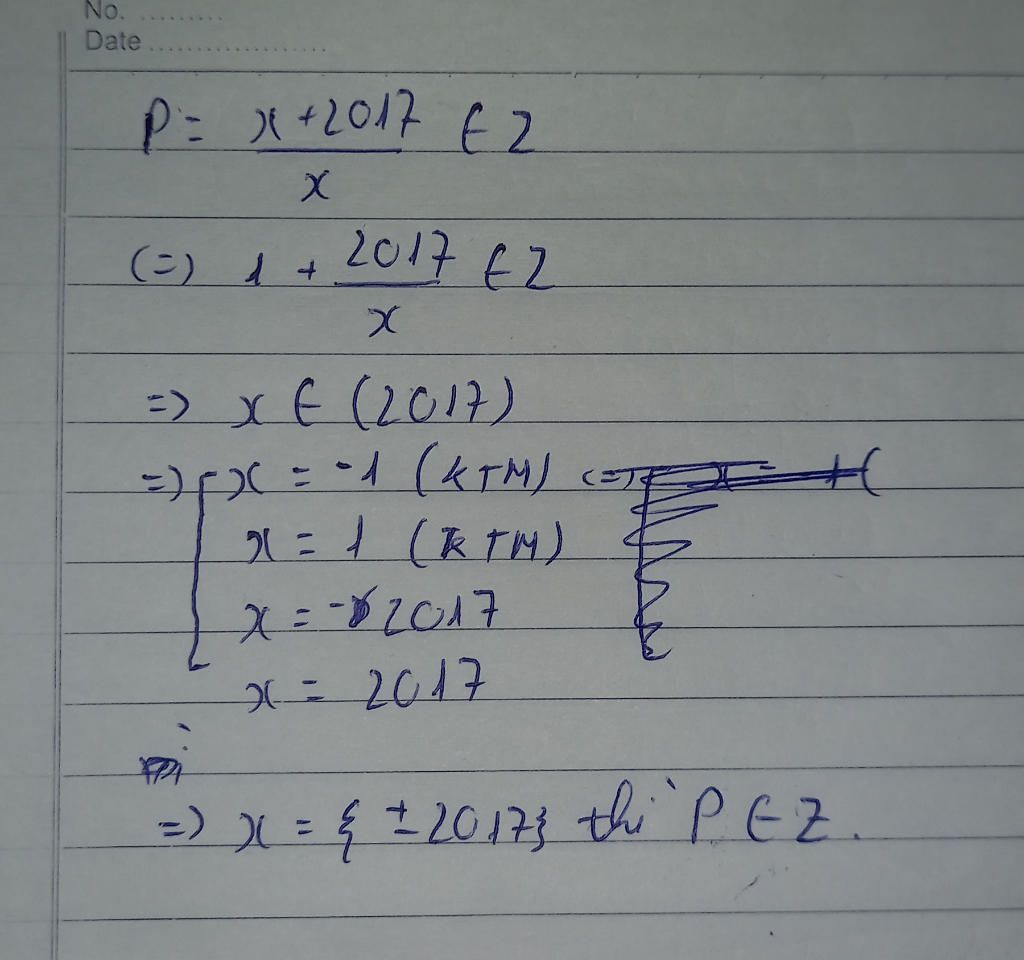 No. .........
Date ...................
P = x+2017 / x ∈ Z
(=) 1 + 2017 / x ∈ Z
=> x ∈ (2017)
=> [ x = -1 (KTM) <=>
x = 1 (KTM)
x = -2017
x = 2017
=> x = { ± 2017} thì P ∈ Z.